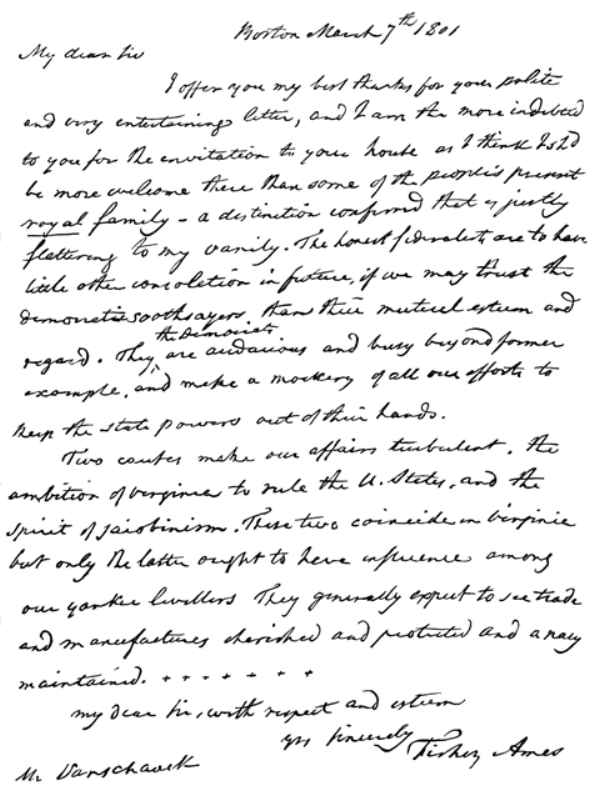 Boston March 7th 1801
My dear Sir
I offer you my best thanks for your polite
and very entertaining letter, and I am the more indebted
to you for the invitation to your house as I think I shd
be more welcome there than some of the people's present
royal family - a distinction confirmed that is justly
flattering to my vanity. The honest federalists are to have
little other consolation in future, if we may trust the
democratic soothsayers, than their mutual esteem and
the Democrats
regard. They, are audacious and busy beyond former
example, and make a mockery of all our efforts to
keep the state powers out of their hands.
Two causes make our affairs turbulent, the
ambition of virginia to rule the U. States, and the
spirit of jacobinism. These two coincide in virginia
but only the latter ought to have influence among
our yankee levellers They generally expect to see trade
and manufactures cherished and protected and a navy
maintained. + + + + + + +
my dear Sir, with respect and esteem
yrs Sincerely
Fisher Ames
Mr Vanschaack